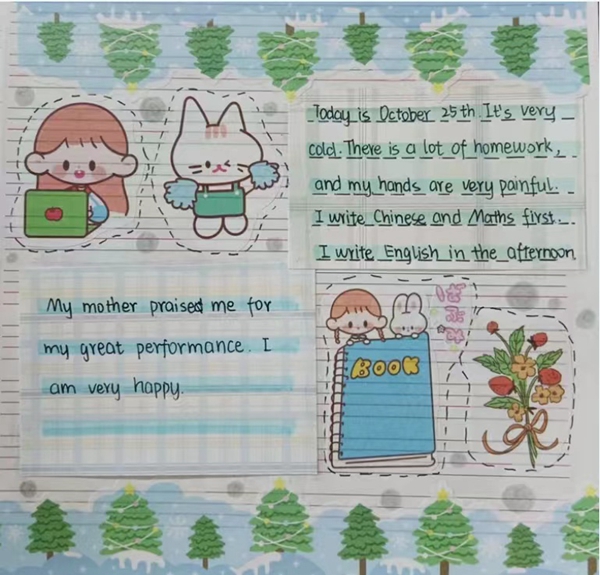 Today is October 25th. It's very
cold. There is a lot of homework,
and my hands are very painful.
I write Chinese and Maths first.
I write English in the afternoon.
My mother praised me for
my great performance. I
am very happy.
BOOK